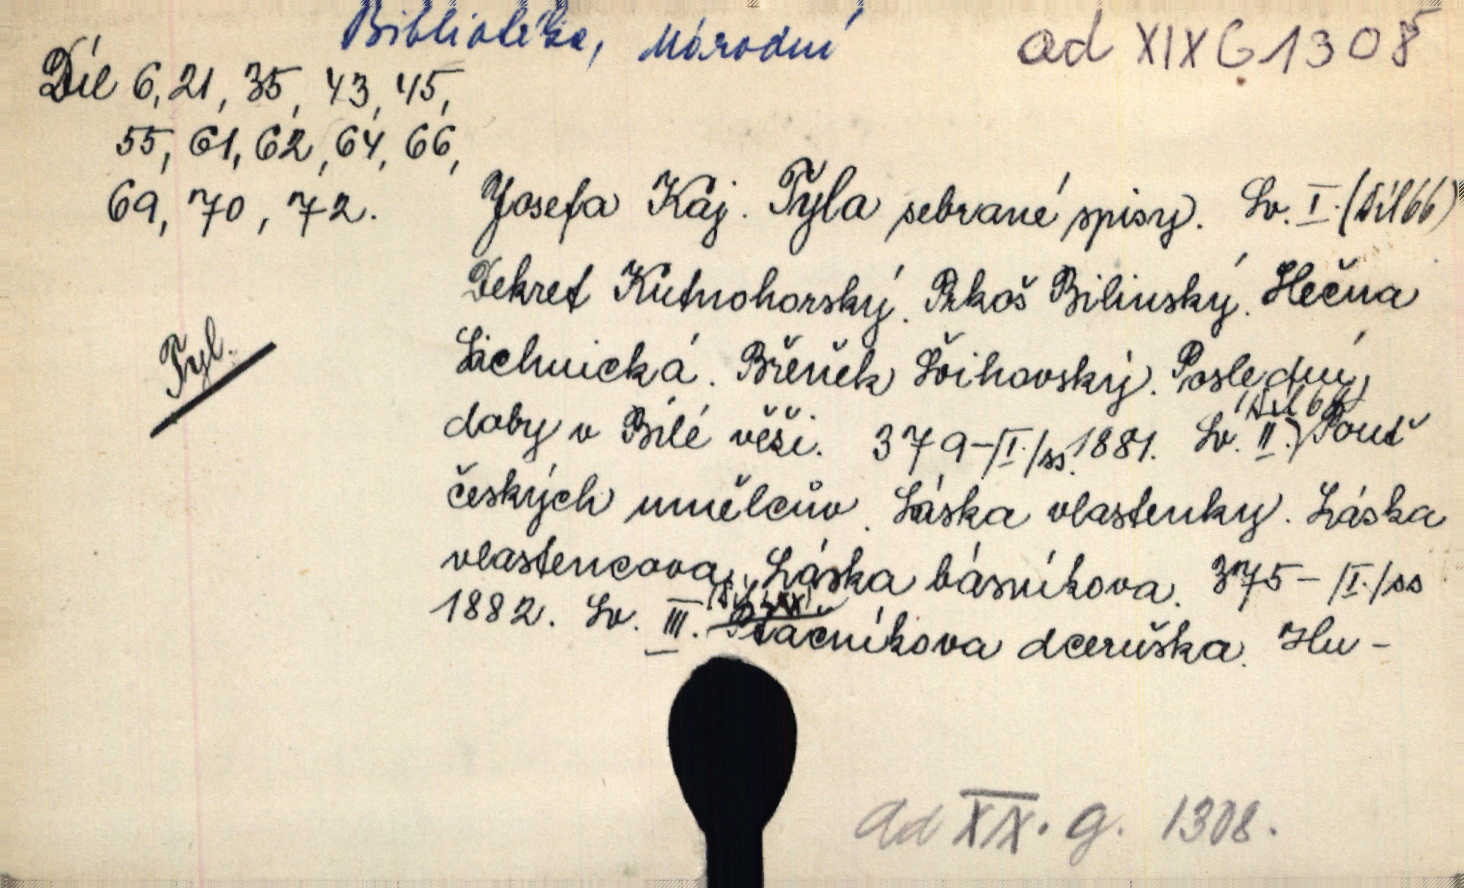 Bibliotéka, Národní
ad XIX G 1308
Díl 6, 21, 35, 43, 45,
55, 61, 62, 64, 66,
69, 70, 72.
Josefa Kaj. Tyla sebrané spisy. Sv. I. (díl 66)
Dekret Kutnohorský. Prkoš Bilinský. Hečna
Lichnická. Břeněk Švihovský. Poslední
doby v Bílé věži. 379-/I./ss. 1881. Sv. II. Pouť
českých umělcův. Láska vlastenky. Láska
vlastencova. Láska básníkova. 375-/I./ss
1882. Sv. III. Ptáčníkova dceruška. Hu-
Tyl.
ad XIX. g. 1308.